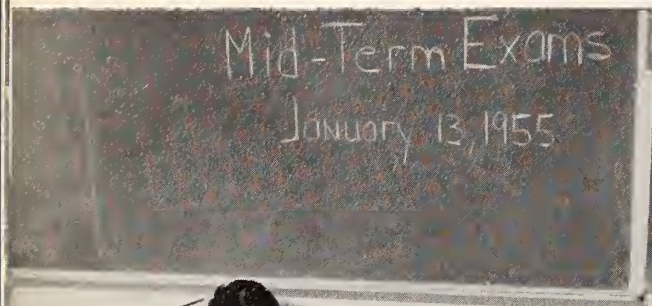 Mid-Term Exams
January 13, 1955